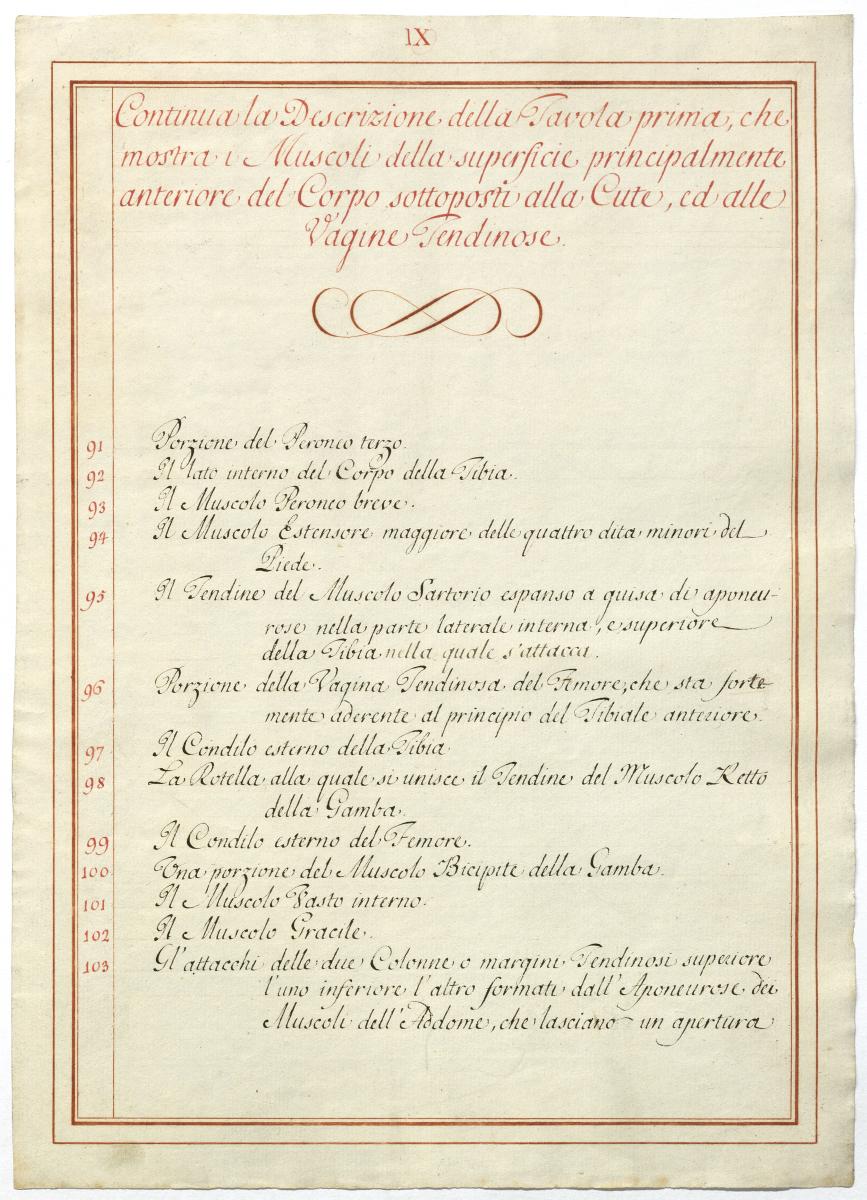 IX
Continua la Descrizione della Tavola prima, che
mostra i Muscoli della superficie principalmente
anteriore del Corpo sottoposti alla Cute, ed alle
Vagine Tendinose.
91 Porzione del Peroneo terzo.
92 Il lato interno del Corpo della Tibia.
93 Il Muscolo Peroneo breve.
94 Il Muscolo Estensore maggiore delle quattro dita minori del
Piede.
95 Il Tendine del Muscolo Sartorio espanso a guisa di aponeu-
rose nella parte laterale interna, e superiore
della Tibia nella quale s'attacca.
96 Porzione della Vagina Tendinosa del Femore, che sta forte
mente aderente al principio del Tibiale anteriore.
97 Il Condilo esterno della Tibia
98 La Rotella alla quale si unisce il Tendine del Muscolo Retto
della Gamba.
99 Il Condilo esterno del Femore.
100 Una porzione del Muscolo Bicipite della Gamba.
101 Il Muscolo Vasto interno.
102 Il Muscolo Gracile.
103 Gl'attacchi delle due Colonne o margini Tendinosi superiore
l'uno inferiore l'altro formati dall'Aponeurose dei
Muscoli dell'Addome, che lasciano un apertura